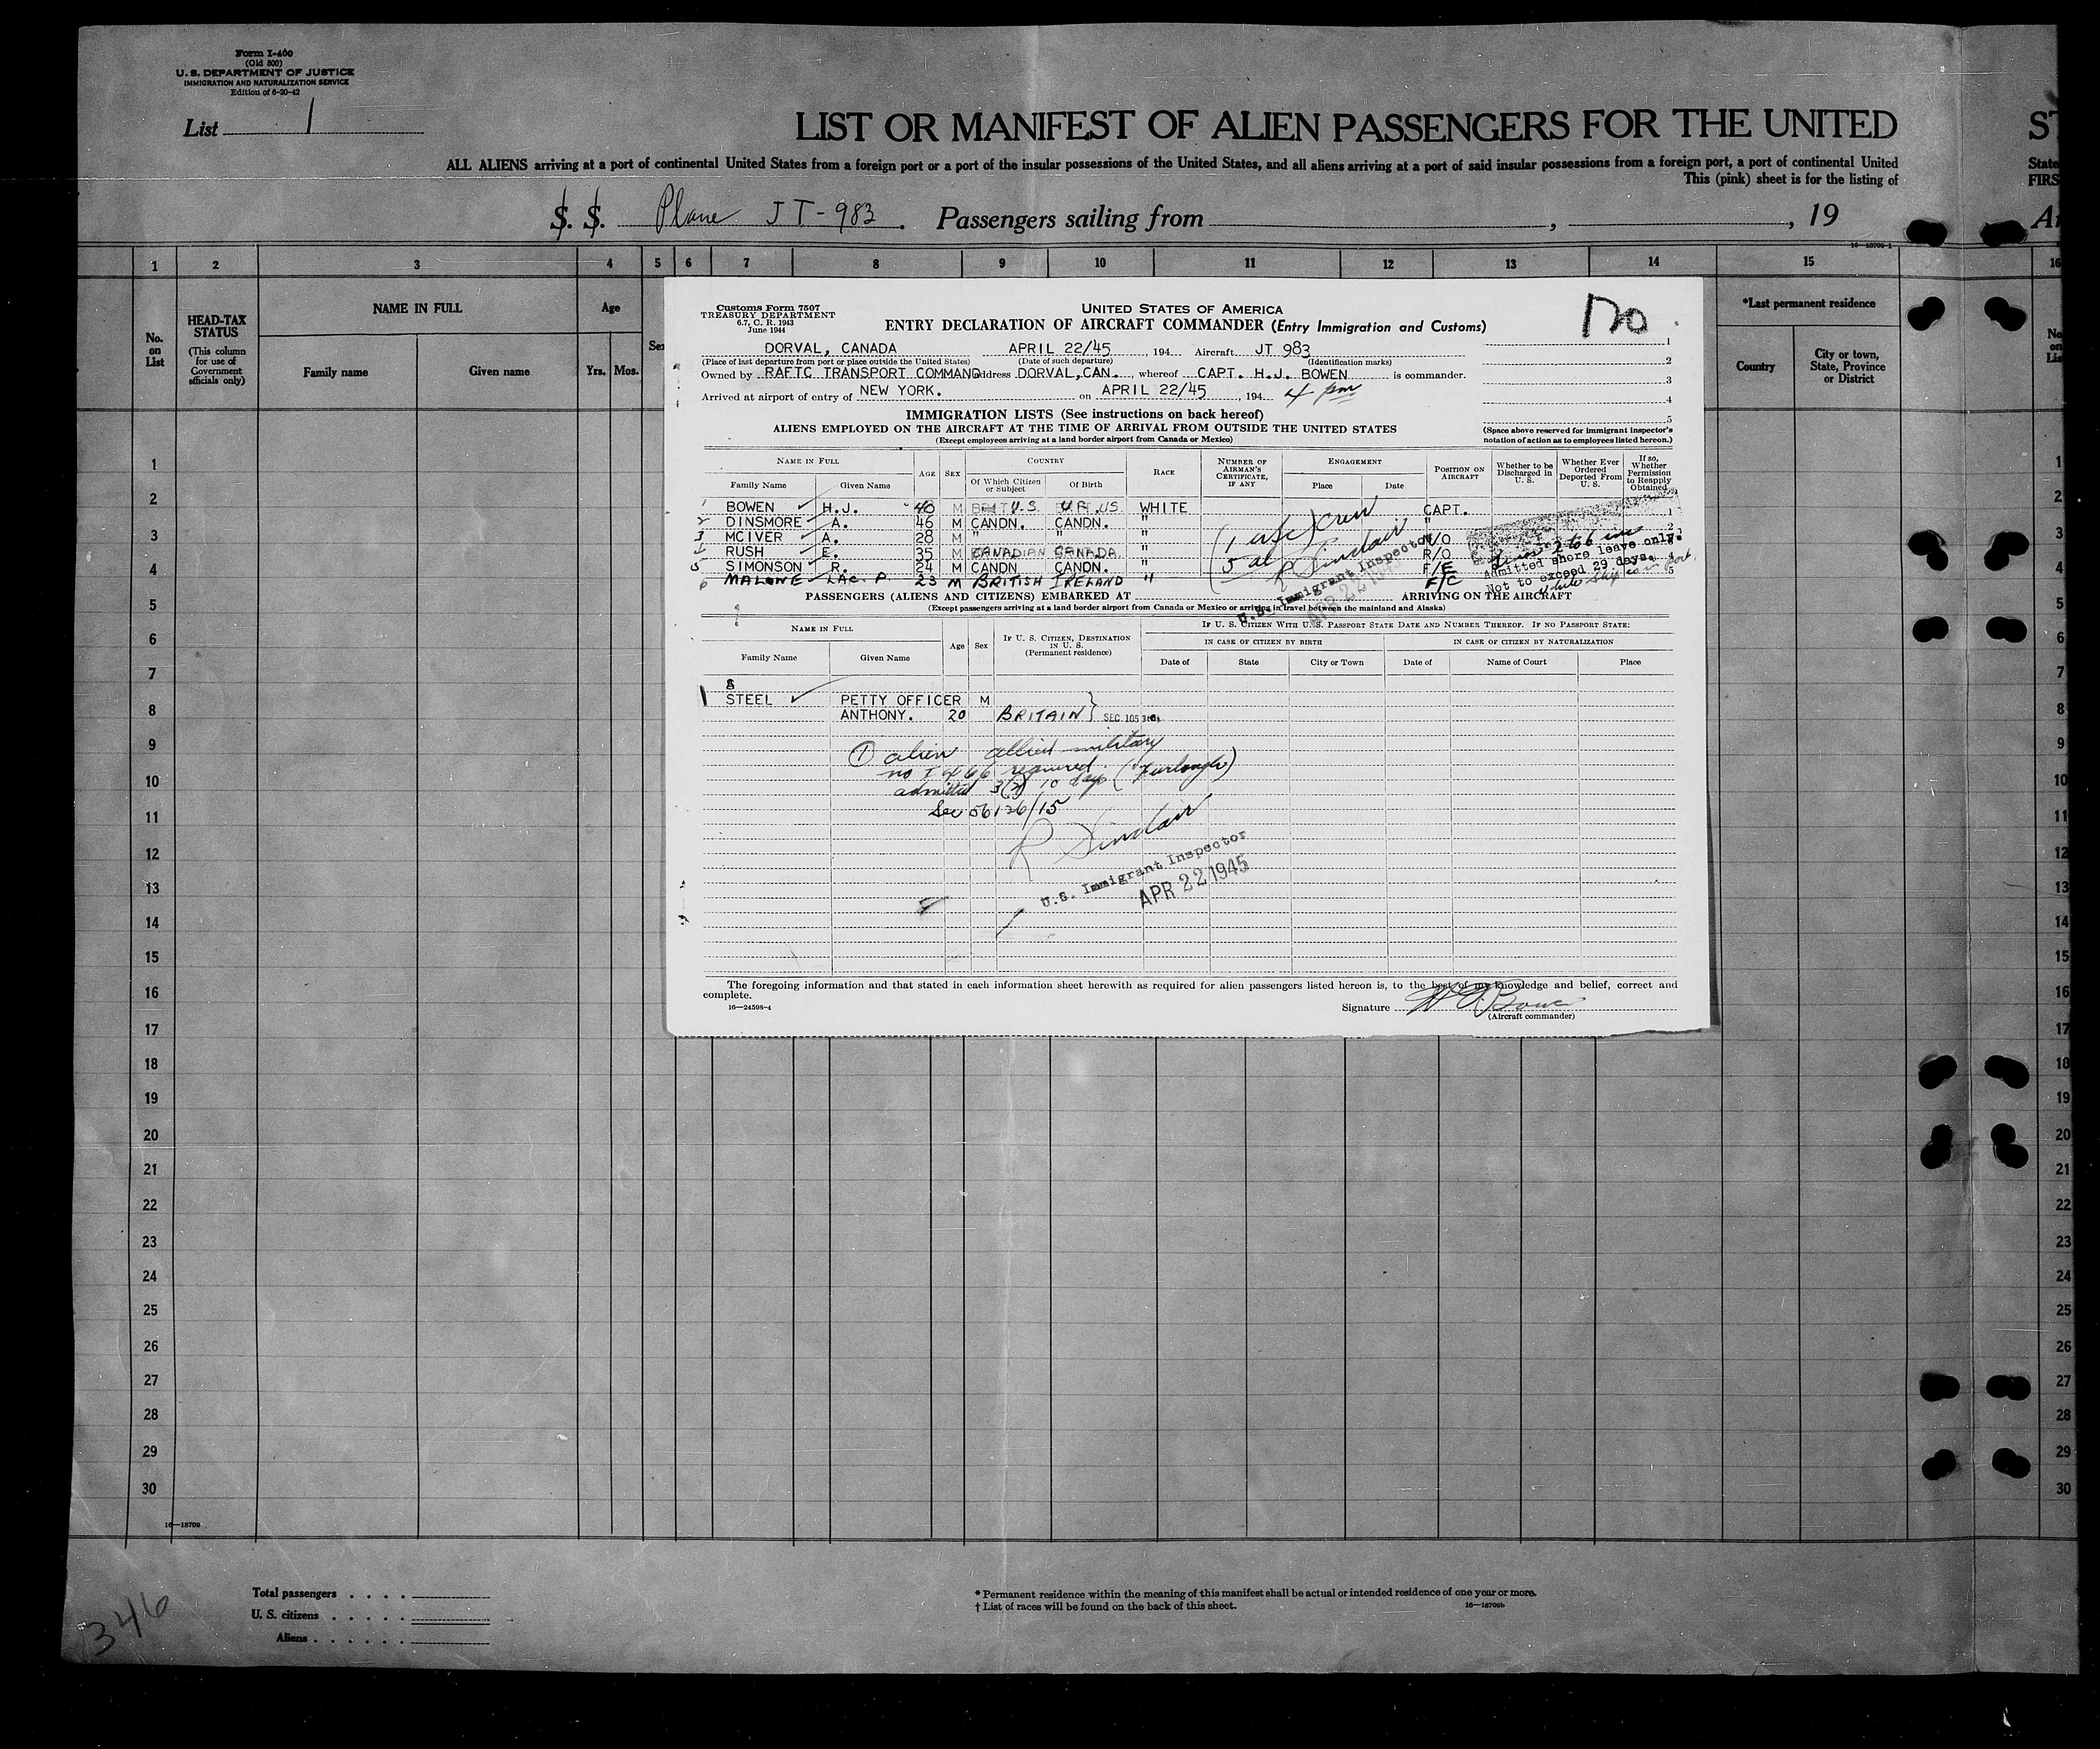 Form I-400
(Old 500)
U. S. DEPARTMENT OF JUSTICE
IMMIGRATION AND NATURALIZATION SERVICE
Edition of 6-20-42
List 1
LIST OR MANIFEST OF ALIEN PASSENGERS FOR THE UNITED
ST
ALL ALIENS arriving at a port of continental United States from a foreign port or a port of the insular possessions of the United States, and all aliens arriving at a port of said insular possessions from a foreign port, a port of continental United
State
This (pink) sheet is for the listing of
FIRS
S. S. Plane JT-983. Passengers sailing from , , 19
16-18709-1
1 2 3 4 5 6 7 8 9 10 11 12 13 14 15 16
No. on List
HEAD-TAX STATUS
(This column for use of Government officials only)
NAME IN FULL
Family name Given name
Age
Yrs. Mos.
Sex
*Last permanent residence
Country
City or town, State, Province or District
Customs Form 7507
TREASURY DEPARTMENT
6.7, C. R. 1943
June 1944
UNITED STATES OF AMERICA
ENTRY DECLARATION OF AIRCRAFT COMMANDER (Entry Immigration and Customs)
DORVAL, CANADA APRIL 22/45, 194 Aircraft JT 983
(Place of last departure from port or place outside the United States) (Date of such departure) (Identification marks)
Owned by RAFTC TRANSPORT COMMAND address DORVAL, CAN., whereof CAPT. H.J. BOWEN is commander.
Arrived at airport of entry of NEW YORK. on APRIL 22/45, 194 4 pm
1
2
3
4
5
(Space above reserved for immigrant inspector's notation of action as to employees listed hereon.)
IMMIGRATION LISTS (See instructions on back hereof)
ALIENS EMPLOYED ON THE AIRCRAFT AT THE TIME OF ARRIVAL FROM OUTSIDE THE UNITED STATES
(Except employees arriving at a land border airport from Canada or Mexico)
NAME IN FULL AGE SEX COUNTRY RACE NUMBER OF AIRMAN'S CERTIFICATE, IF ANY ENGAGEMENT POSITION ON AIRCRAFT Whether to be Discharged in U. S. Whether Ever Ordered Deported From U. S. If so, Whether Permission to Reapply Obtained
Family Name Given Name Of Which Citizen or Subject Of Birth Place Date
1 BOWEN H.J. 40 M U.S. US WHITE CAPT.
2 DINSMORE A. 46 M CANDN. CANDN. " "
3 MCIVER A. 28 M " " "
4 RUSH E. 35 M CANADIAN CANADA. " R/O
5 SIMONSON R. 24 M CANDN CANDN. " F/E
6 MALONE LAC. P. 23 M BRITISH IRELAND " F/C
(1 usc) crew
5 al R Sinclair
U.S. Immigrant Inspector
APR 22 1945
2 to 6 inc
Admitted shore leave only.
Not to exceed 29 days.
while ship is in port
PASSENGERS (ALIENS AND CITIZENS) EMBARKED AT ARRIVING ON THE AIRCRAFT
(Except passengers arriving at a land border airport from Canada or Mexico or arriving in travel between the mainland and Alaska)
NAME IN FULL Age Sex IF U. S. CITIZEN, DESTINATION IN U. S. (Permanent residence) IF U. S. CITIZEN WITH U. S. PASSPORT STATE DATE AND NUMBER THEREOF. IF NO PASSPORT STATE:
IN CASE OF CITIZEN BY BIRTH IN CASE OF CITIZEN BY NATURALIZATION
Family Name Given Name Date of State City or Town Date of Name of Court Place
1 STEEL PETTY OFFICER M
ANTHONY. 20 BRITAIN SEC 105 3(
① alien allied military
no I 466 required.
admitted 3(2) 10 days (Furlough)
See 56126/15
R Sinclair
U.S. Immigrant Inspector
APR 22 1945
The foregoing information and that stated in each information sheet herewith as required for alien passengers listed hereon is, to the best of my knowledge and belief, correct and
complete.
16-24598-4
Signature H J Bowen
(Aircraft commander)
1
2
3
4
5
6
7
8
9
10
11
12
13
14
15
16
17
18
19
20
21
22
23
24
25
26
27
28
29
30
16-18709
Total passengers
U. S. citizens
Aliens
* Permanent residence within the meaning of this manifest shall be actual or intended residence of one year or more.
† List of races will be found on the back of this sheet.
16-18709b
346